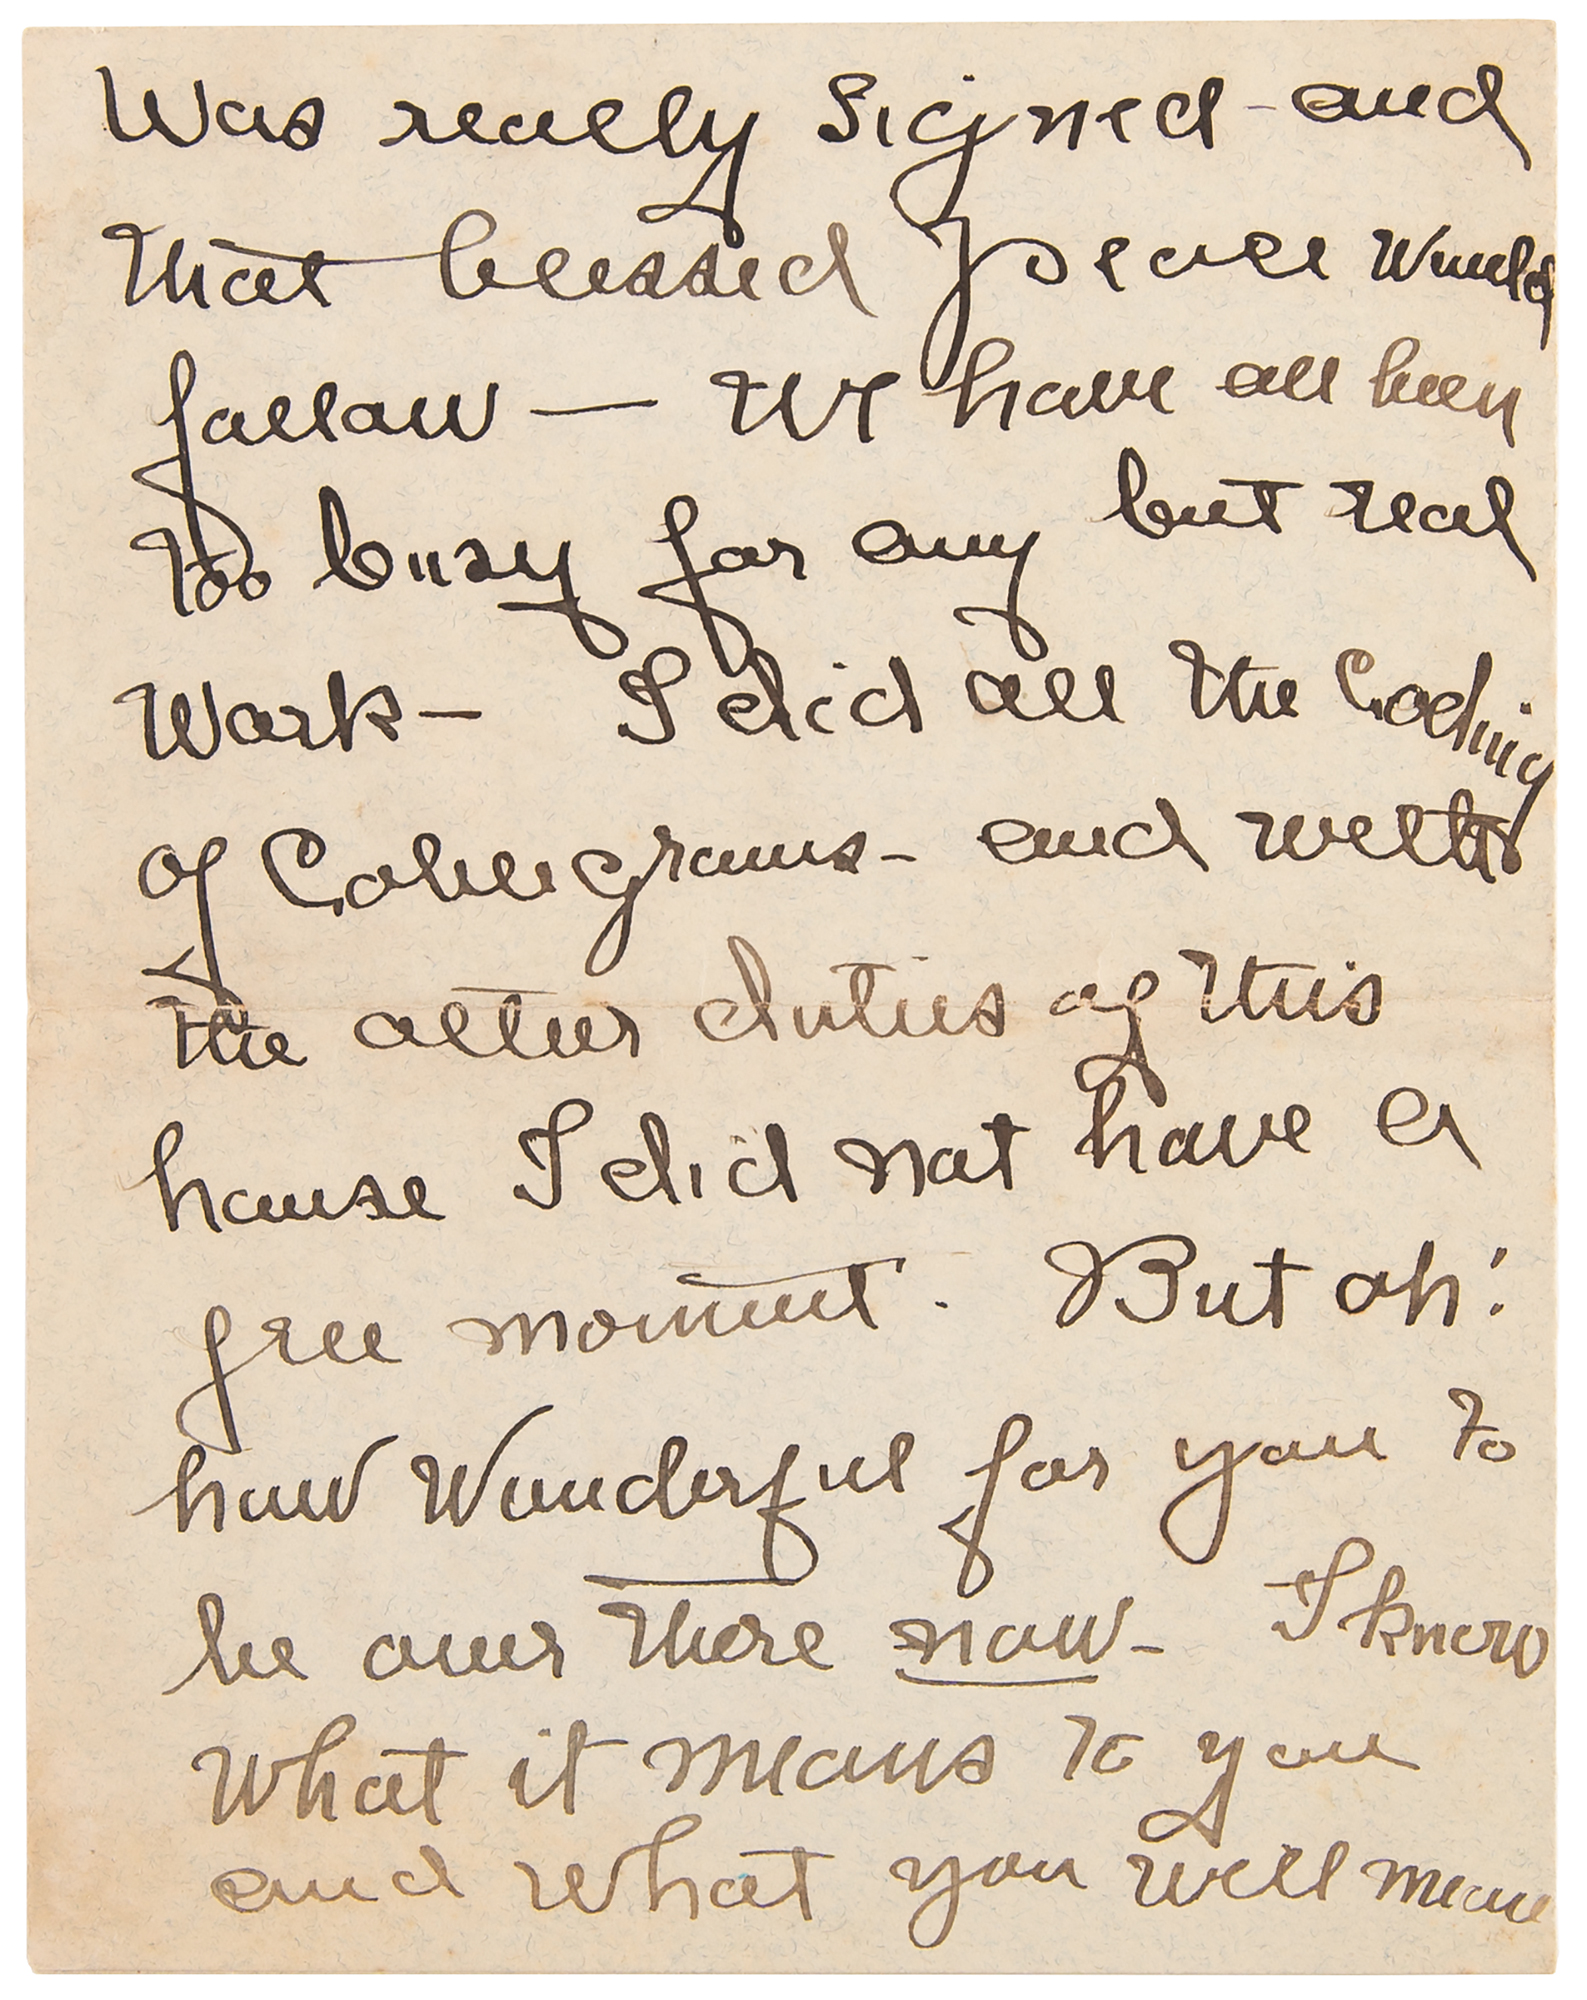 Was really signed - and
that blessed peace would
follow — We have all been
too busy for any but real
work — I did all the Coding
of Cablegrams - and with
the other duties of this
house I did not have a
free moment. But oh!
how wonderful for you to
be over there now - I know
what it means to you
and what you will mean